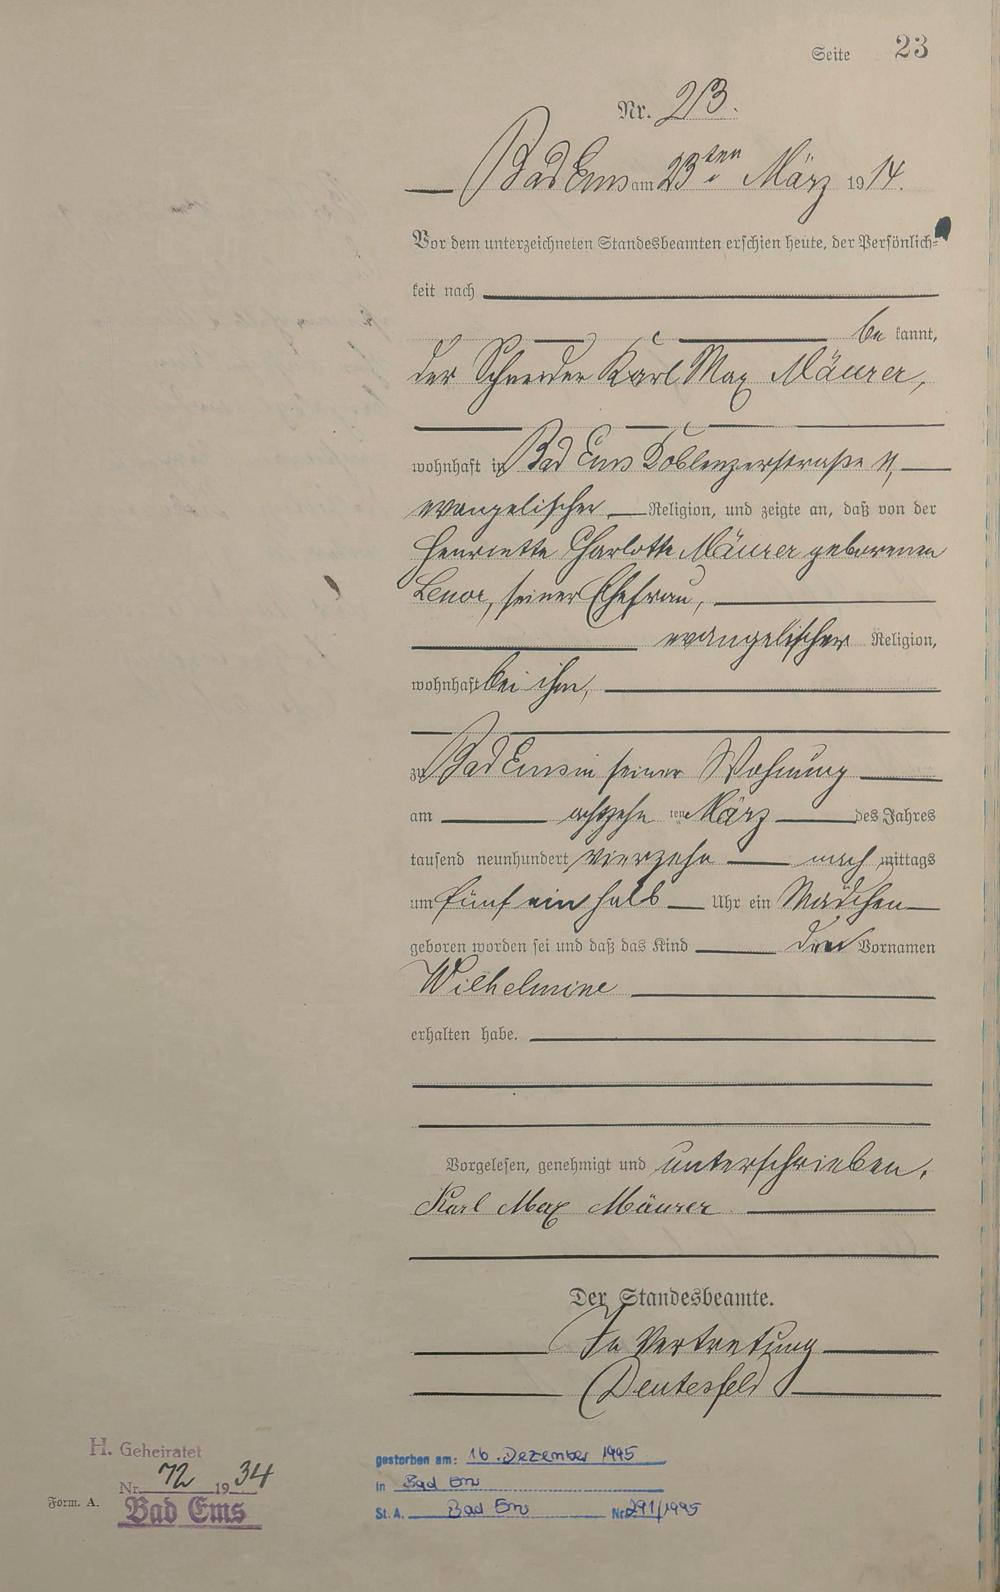 Seite 23
Nr. 23.
Bad Ems am 23ten März 1914.
Vor dem unterzeichneten Standesbeamten erschien heute, der Persönlich-
keit nach
be kannt,
der Schneider Karl Max Mäurer,
wohnhaft in Bad Ems Koblenzerstraße 11,
evangelischer Religion, und zeigte an, daß von der
Henriette Charlotte Mäurer geborenen
seiner Ehefrau,
evangelischer Religion,
wohnhaft bei ihm,
zu Bad Ems in seiner Wohnung
am achtzehn ten März des Jahres
tausend neunhundert vierzehn nach mittags
um fünf ein halb Uhr ein Mädchen
geboren worden sei und daß das Kind den Vornamen
Wilhelmine
erhalten habe.
Vorgelesen, genehmigt und unterschrieben.
Karl Max Mäurer
Der Standesbeamte.
In Vertretung
Deutesfeld
H. Geheiratet
Nr. 72 1934
Form. A.
Bad Ems
gestorben am: 16. Dezember 1995
in Bad Ems
St. A. Bad Ems Nr. 291/1995